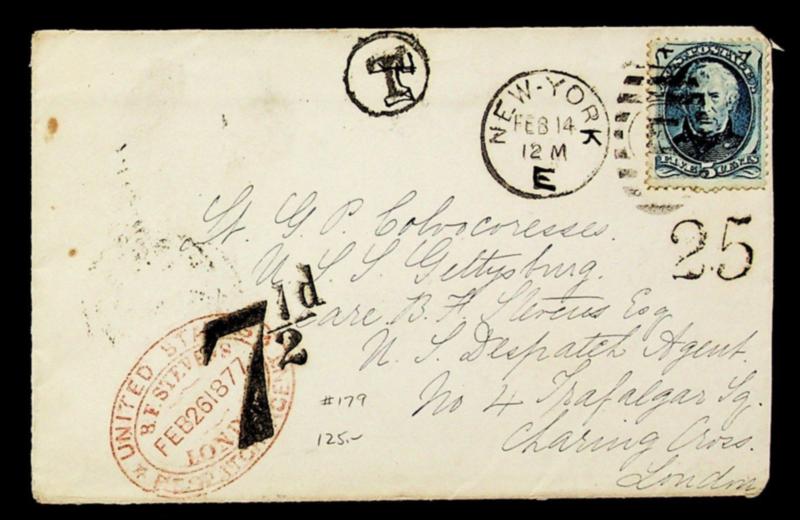 T
NEW-YORK
FEB 14
12 M
E
FIVE 5 CENTS
25
Lt. G. P. Colvocoresses.
U. S. S. Gettysburg.
Care B. F. Stevens Esq
U. S. Despatch Agent.
No 4 Trafalgar Sq.
Charing Cross.
London
7 1/2 d
UNITED STATES
B.F. STEVENS
FEB 26 1877
LONDON
#179
125.-